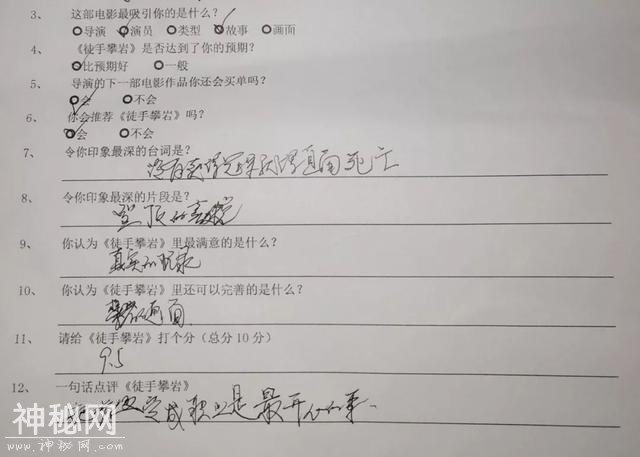 3、 这部电影最吸引你的是什么？
导演 演员 类型 故事 画面
4、 《徒手攀岩》是否达到了你的预期？
比预期好 一般
5、 导演的下一部电影作品你还会买单吗？
会 不会
6、 你会推荐《徒手攀岩》吗？
会 不会
7、 令你印象最深的台词是？
没有 直面死亡
8、 令你印象最深的片段是？
登顶的
9、 你认为《徒手攀岩》里最满意的是什么？
真实的记录
10、 你认为《徒手攀岩》里还可以完善的是什么？
画面
11、 请给《徒手攀岩》打个分（总分 10 分）
9.5
12、 一句话点评《徒手攀岩》
把 变成职业是最开心的事.
神秘网
www.神秘网.com